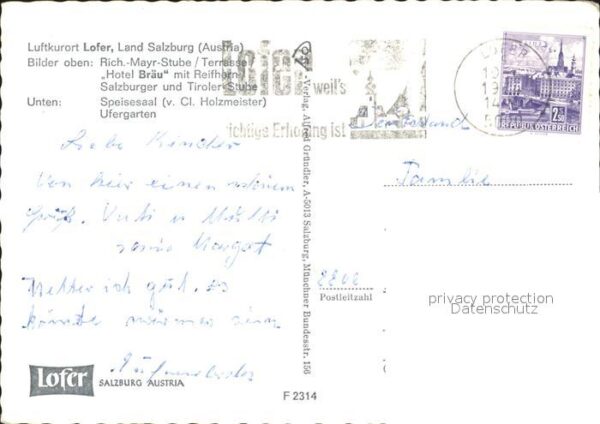 Luftkurort Lofer, Land Salzburg (Austria)
Bilder oben: Rich.-Mayr-Stube / Terrasse
„Hotel Bräu“ mit Reifhorn
Salzburger und Tiroler-Stube
Unten: Speisesaal (v. Cl. Holzmeister)
Ufergarten
Liebe Kinder
Von hier einen schönen
Gruß. Vati u Mutti
sowie Margot
Wetter ist gut. es
könnte wärmer sein
Aufwiedersehn
Lofer
SALZBURG AUSTRIA
F 2314
Verlag Alfred Gründler, A-5013 Salzburg, Münchner Bundesstr. 156
Lofer
weil's
richtige Erholung ist
LOFER
2.50
REPUBLIK ÖSTERREICH
Deutschland
Familie
Postleitzahl
privacy protection
Datenschutz